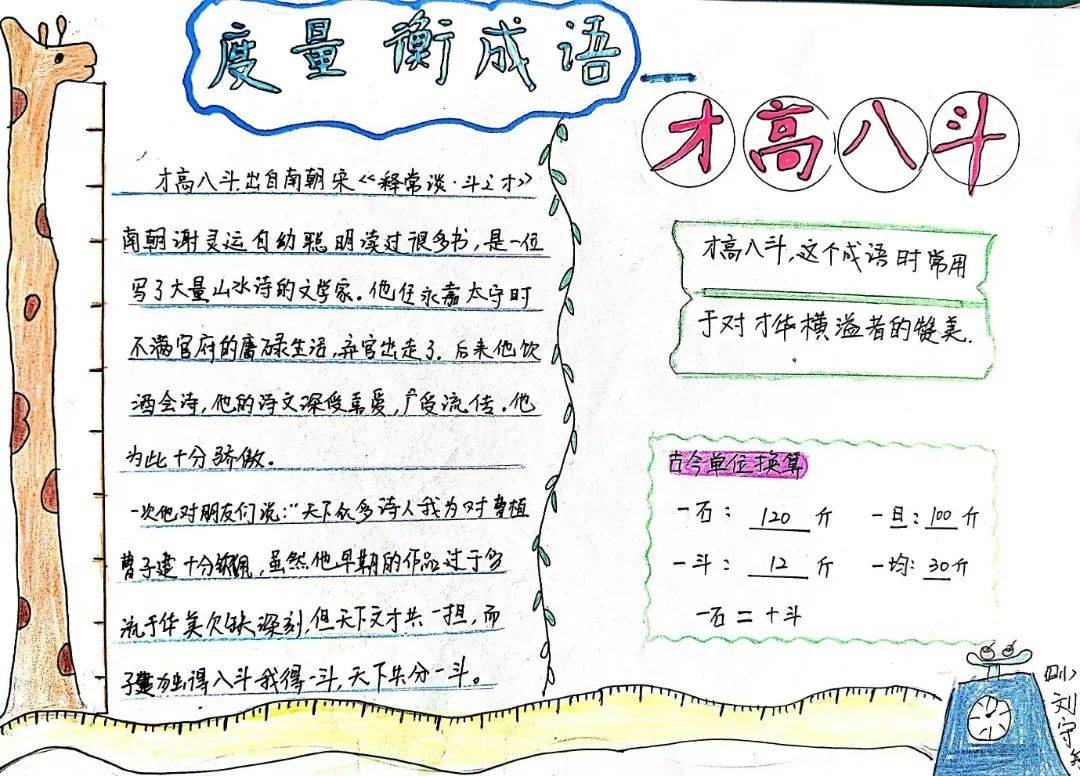 度量衡成语
才高八斗
才高八斗出自南朝宋《释常谈·斗之才》
南朝谢灵运自幼聪明读过很多书，是一位
写了大量山水诗的文学家。他任永嘉太守时
不满官府的庸碌生活，弃官出走了。后来他饮
酒会诗，他的诗文深受喜爱，广受流传。他
为此十分骄傲。
一次他对朋友们说：“天下众多诗人我为对曹植
曹子建十分钦佩，虽然他早期的作品过于
流于华美欠缺深刻，但天下文才共一担，而
子建独得八斗我得一斗，天下共分一斗。
才高八斗，这个成语时常用
于对才华横溢者的赞美.
古今单位换算
一石：120斤 一旦：100斤
一斗：12斤 一均：30斤
一石＝十斗
刘宁